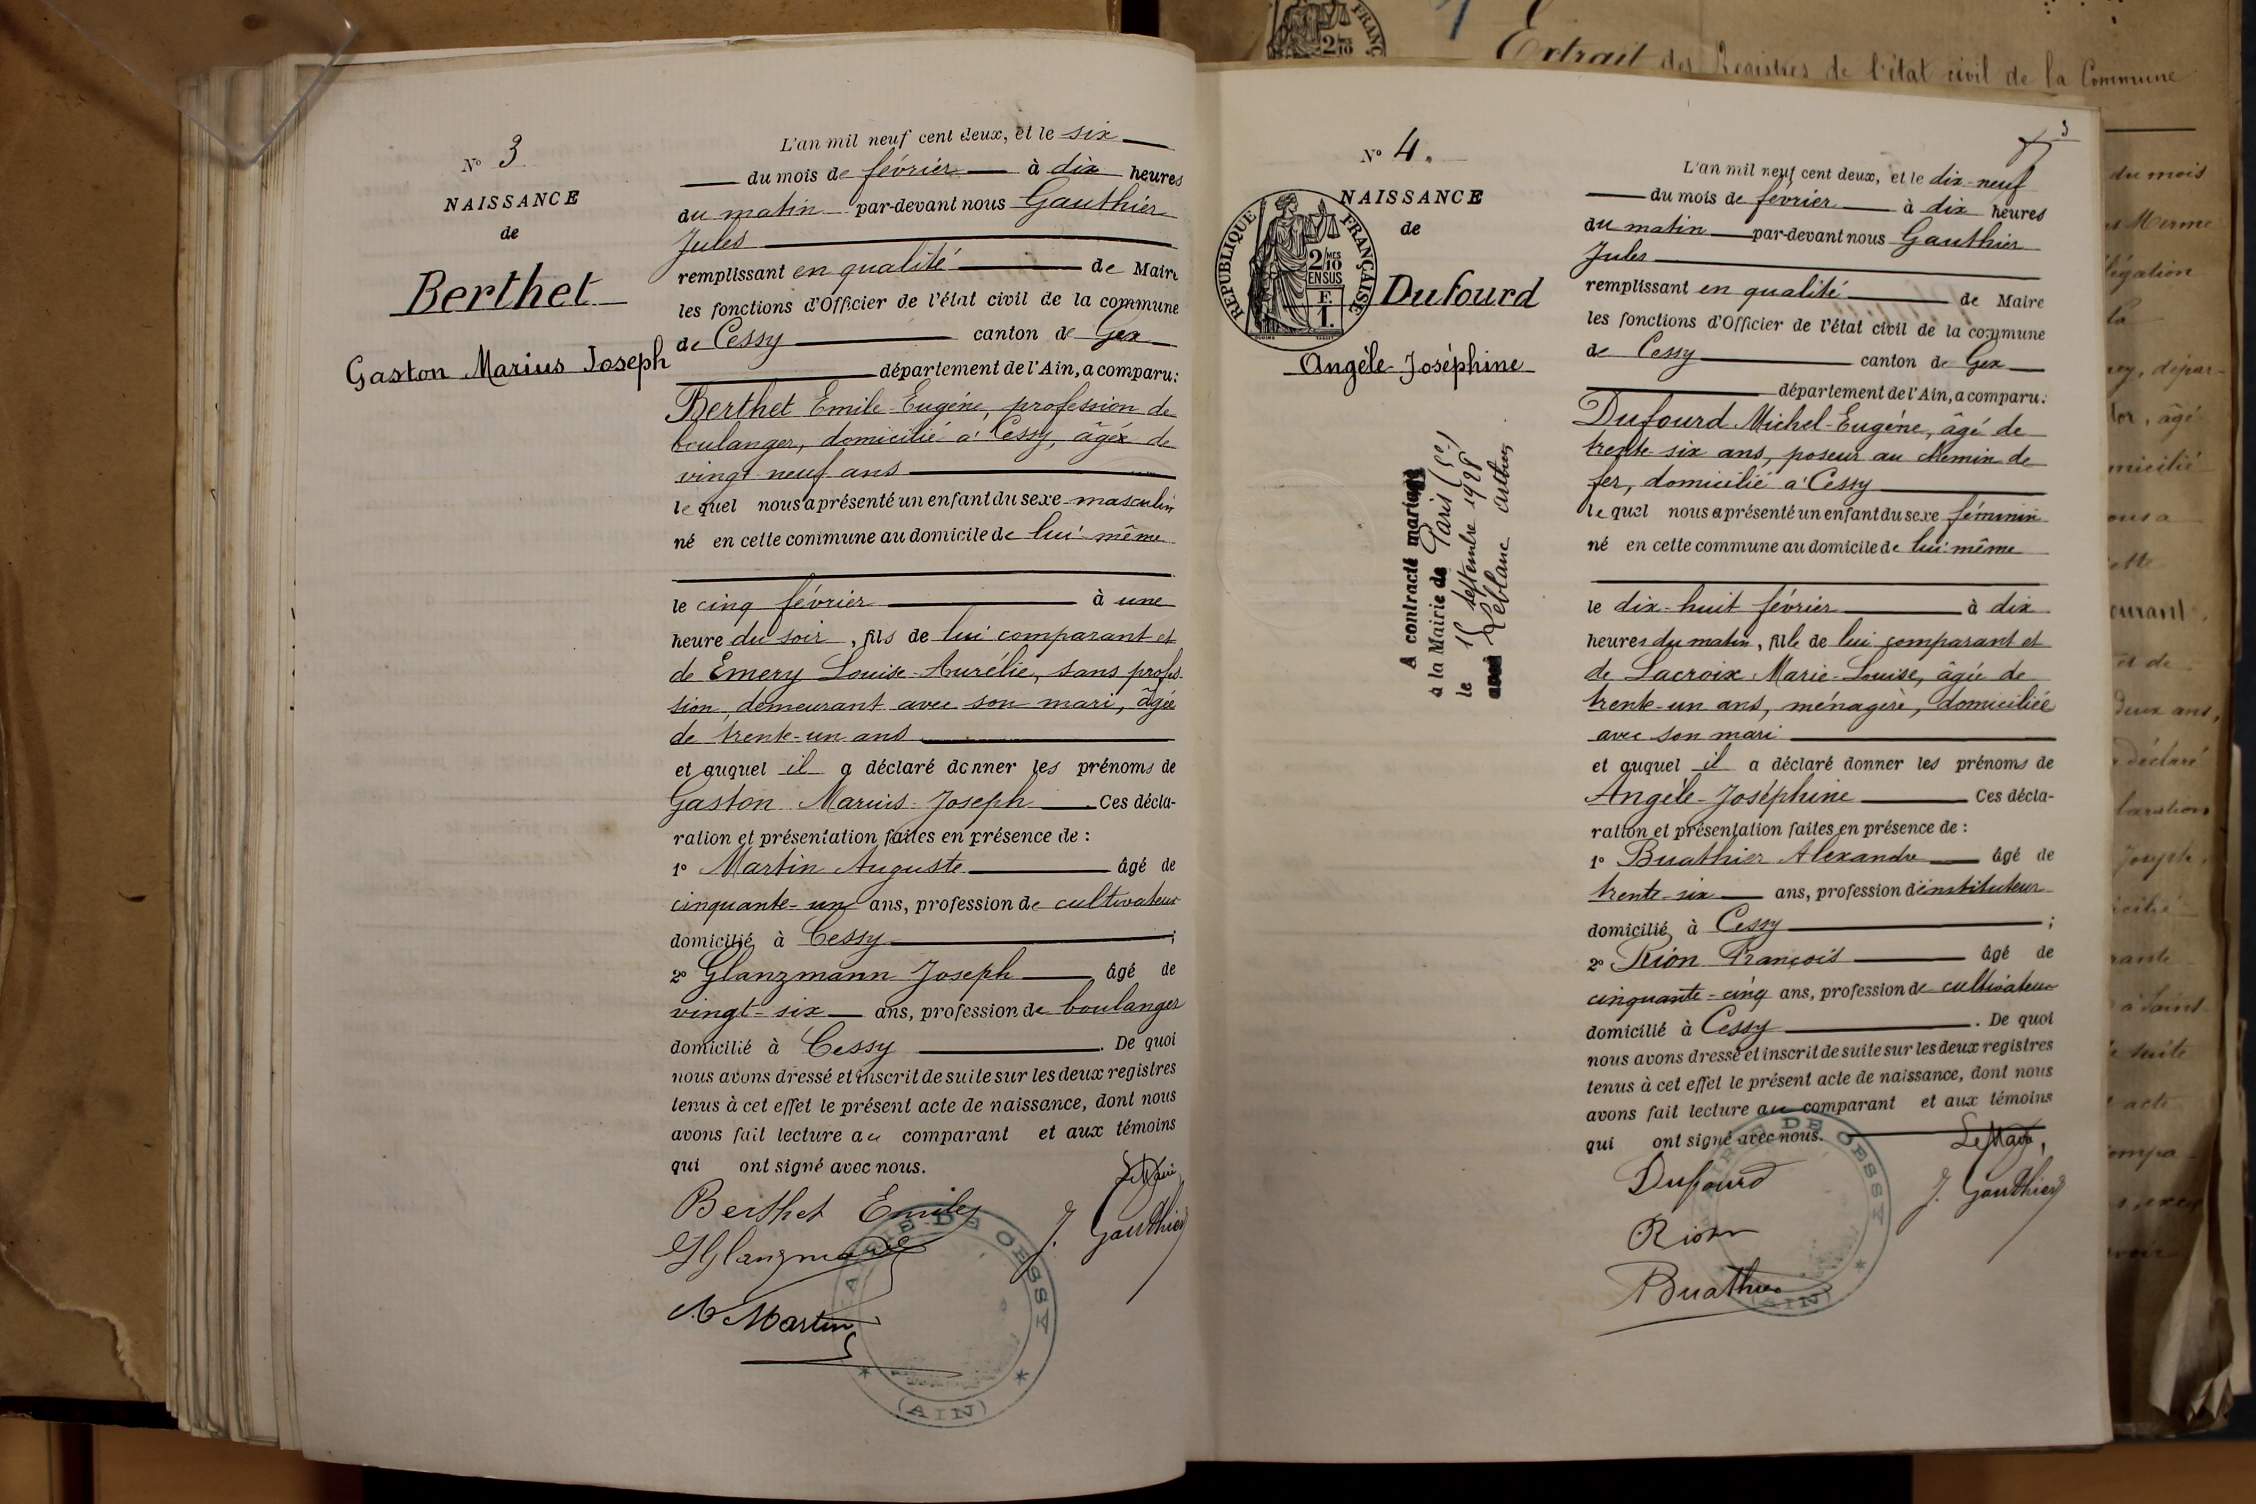 Extrait des Registres de l'état civil de la Commune
N° 3
NAISSANCE
de
Berthet
Gaston Marius Joseph
L'an mil neuf cent deux, et le six
du mois de février à dix heures
du matin par-devant nous Gauthier
Jules
remplissant en qualité de Maire
les fonctions d'Officier de l'état civil de la commune
de Cessy canton de Gex
département de l'Ain, a comparu:
Berthet Emile-Eugène, profession de
boulanger, domicilié à Cessy, âgé de
vingt neuf ans
lequel nous a présenté un enfant du sexe masculin
né en cette commune au domicile de lui-même
le cinq février à une
heure du soir, fils de lui comparant et
de Emery Louise-Aurélie, sans profes-
sion, demeurant avec son mari, âgée
de trente-un ans
et auquel il a déclaré donner les prénoms de
Gaston Marius-Joseph Ces décla-
ration et présentation faites en présence de :
1° Martin Auguste âgé de
cinquante-un ans, profession de cultivateur
domicilié à Cessy ;
2° Glanzmann Joseph âgé de
vingt-six ans, profession de boulanger
domicilié à Cessy . De quoi
nous avons dressé et inscrit de suite sur les deux registres
tenus à cet effet le présent acte de naissance, dont nous
avons fait lecture au comparant et aux témoins
qui ont signé avec nous.
Le Maire
Berthet Emile
J. Gauthier
Glanzmann
A Martin
MAIRIE DE CESSY
(AIN)
3
N° 4.
NAISSANCE
de
REPUBLIQUE FRANÇAISE
2/10 MES
EN SUS
F.
1.
Dufourd
Angèle-Joséphine
A contracté mariage
à la Mairie de Paris (5e)
le 15 septembre 1928
avec Leblanc Arthur
L'an mil neuf cent deux, et le dix-neuf
du mois de février à dix heures
du matin par-devant nous Gauthier
Jules
remplissant en qualité de Maire
les fonctions d'Officier de l'état civil de la commune
de Cessy canton de Gex
département de l'Ain, a comparu:
Dufourd Michel-Eugène, âgé de
trente-six ans, poseur au chemin de
fer, domicilié à Cessy
lequel nous a présenté un enfant du sexe féminin
né en cette commune au domicile de lui-même
le dix-huit février à dix
heures du matin, fille de lui comparant et
de Lacroix Marie-Louise, âgée de
trente-un ans, ménagère, domiciliée
avec son mari
et auquel il a déclaré donner les prénoms de
Angèle-Joséphine Ces décla-
ration et présentation faites en présence de :
1° Buathier Alexandre âgé de
trente-six ans, profession d'instituteur
domicilié à Cessy ;
2° Rion François âgé de
cinquante-cinq ans, profession de cultivateur
domicilié à Cessy . De quoi
nous avons dressé et inscrit de suite sur les deux registres
tenus à cet effet le présent acte de naissance, dont nous
avons fait lecture au comparant et aux témoins
qui ont signé avec nous.
Le Maire,
Dufourd
J. Gauthier
Rion
Buathier
MAIRIE DE CESSY
(AIN)